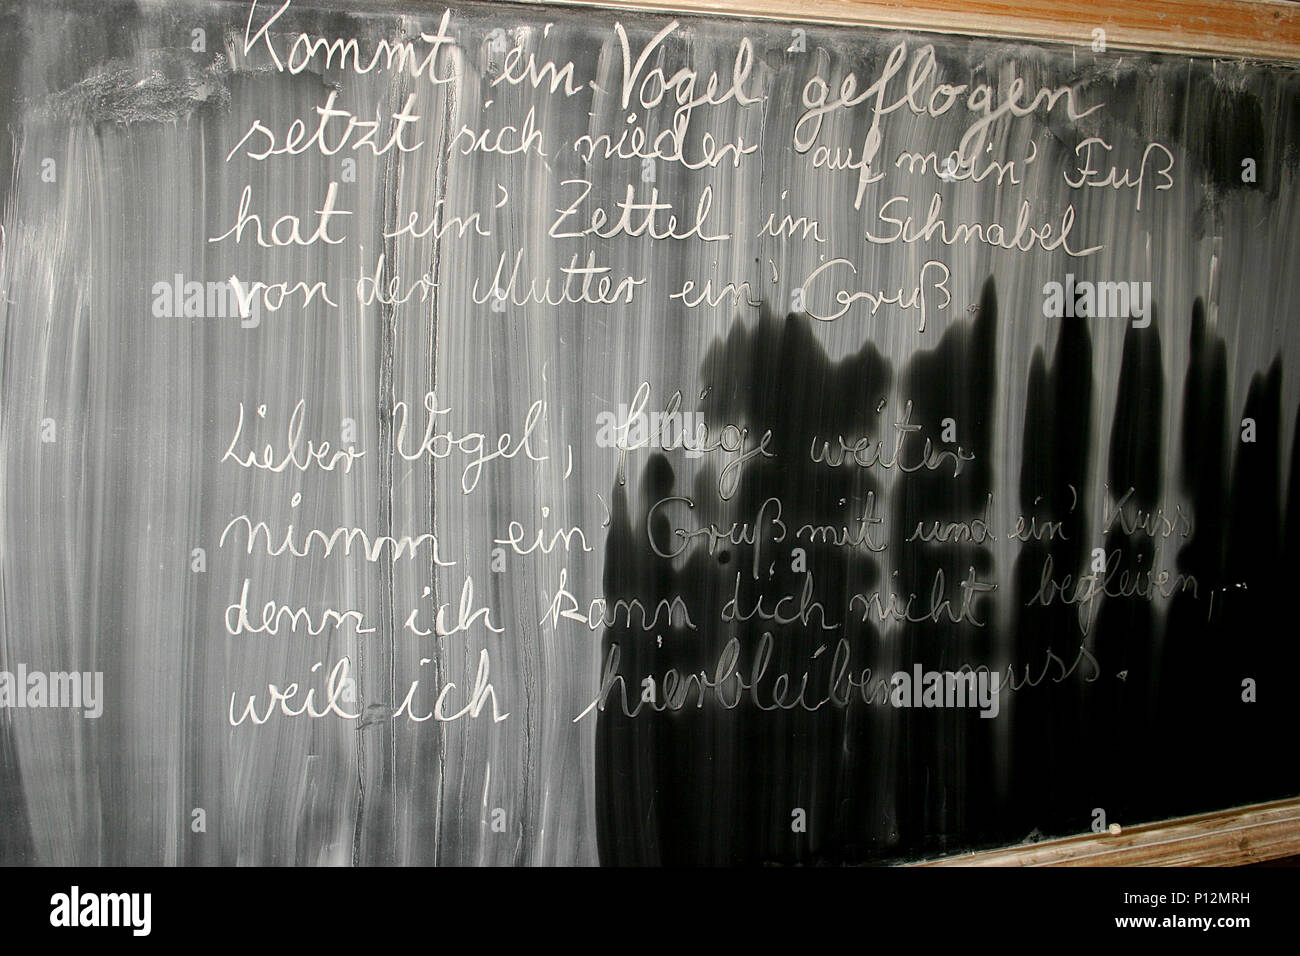 Kommt ein Vogel geflogen
setzt sich nieder auf mein' Fuß
hat ein' Zettel im Schnabel
von der Mutter ein' Gruß.
Lieber Vogel, fliege weiter
nimm ein' Gruß mit und ein' Kuss
denn ich kann dich nicht begleiten,
weil ich hierbleiben muss.
alamy
alamy
Image ID: P12MRH
www.alamy.com